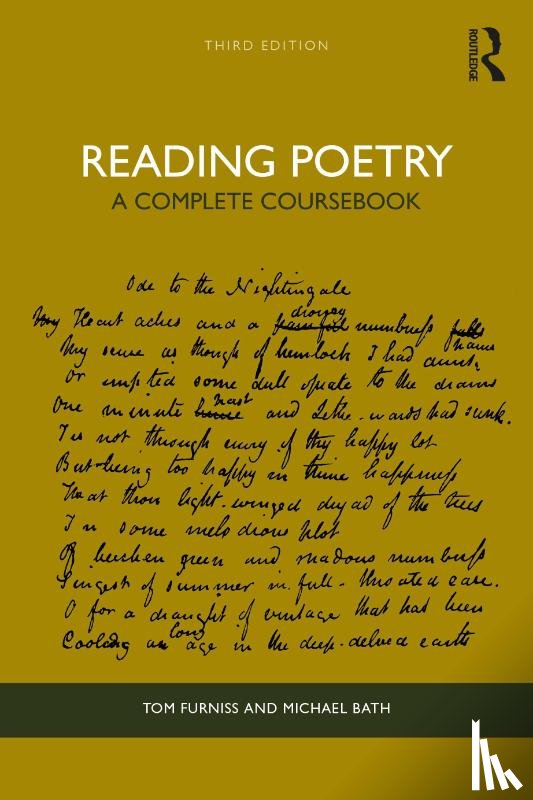 THIRD EDITION
ROUTLEDGE
READING POETRY
A COMPLETE COURSEBOOK
Ode to the Nightingale
drowsy
My Heart aches and a painful numbness falls
pains
My sense as though of hemlock I had drunk,
Or emptied some dull opiate to the drains
past
One minute and Lethe-wards had sunk.
Tis not through envy of thy happy lot
But being too happy in thine happiness
That thou light-winged dryad of the trees
In some melodious plot
Of beechen green and shadows numberless
Singest of summer in full-throated ease.
O for a draught of vintage that has been
long
Cooling an age in the deep-delved earth
TOM FURNISS AND MICHAEL BATH